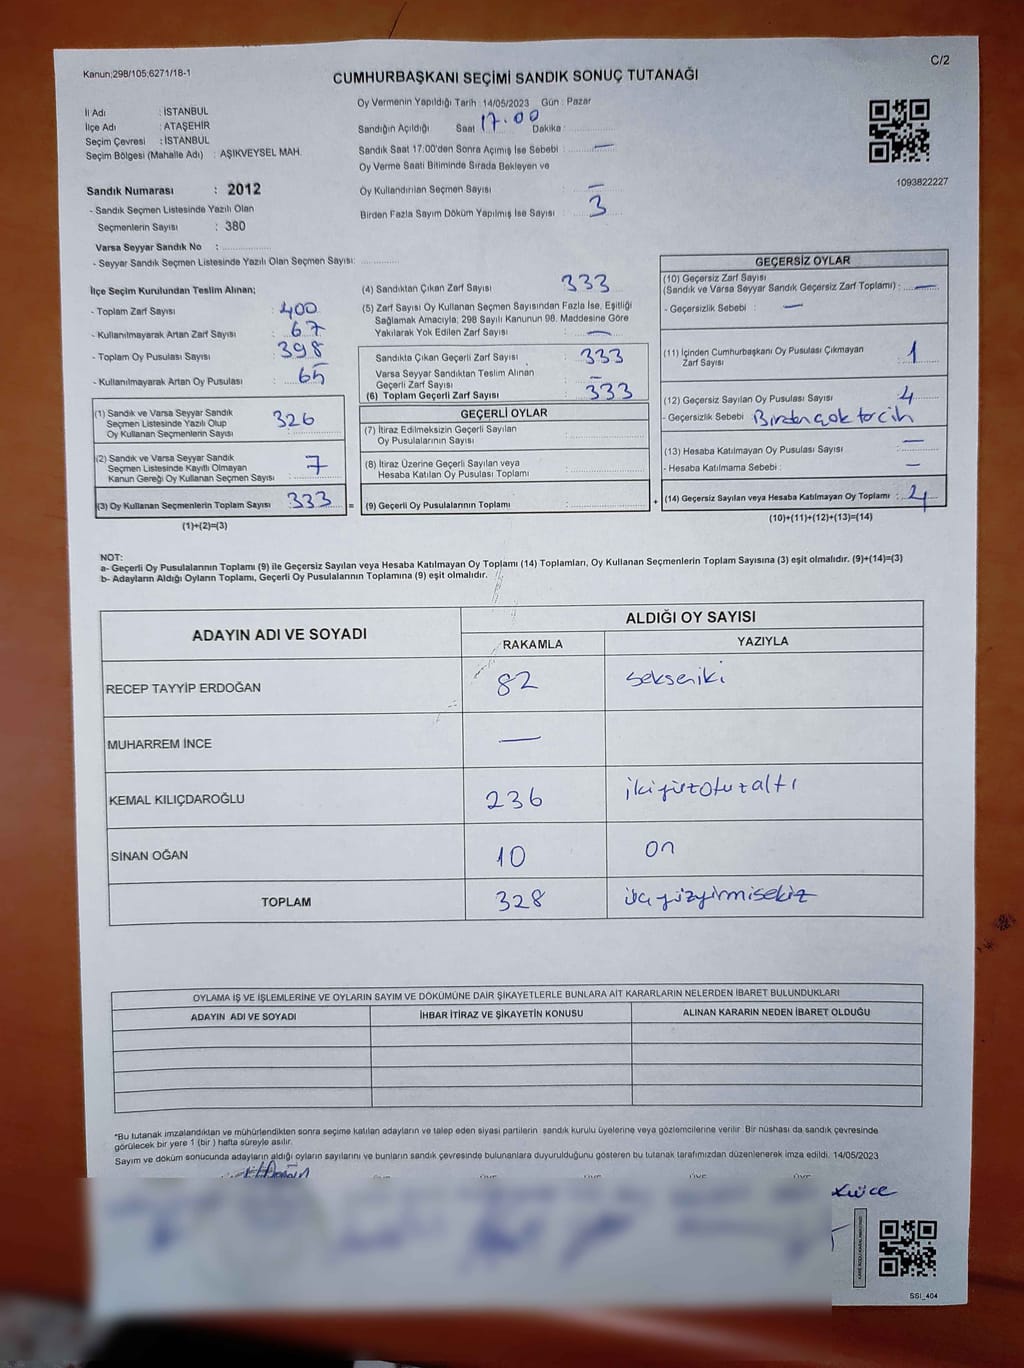 Kanun;298/105;6271/18-1
C/2
CUMHURBAŞKANI SEÇİMİ SANDIK SONUÇ TUTANAĞI
İl Adı : İSTANBUL
İlçe Adı : ATAŞEHİR
Seçim Çevresi : İSTANBUL
Seçim Bölgesi (Mahalle Adı) : AŞIKVEYSEL MAH.
Oy Vermenin Yapıldığı Tarih : 14/05/2023 Gün : Pazar
Sandığın Açıldığı Saat : 17.00 Dakika :
Sandık Saat 17:00'den Sonra Açımış İse Sebebi : —
Oy Verme Saati Bitiminde Sırada Bekleyen ve
Oy Kullandırılan Seçmen Sayısı : —
Birden Fazla Sayım Döküm Yapılmış İse Sayısı : 3
1093822227
Sandık Numarası : 2012
- Sandık Seçmen Listesinde Yazılı Olan
Seçmenlerin Sayısı : 380
Varsa Seyyar Sandık No :
- Seyyar Sandık Seçmen Listesinde Yazılı Olan Seçmen Sayısı:
İlçe Seçim Kurulundan Teslim Alınan;
- Toplam Zarf Sayısı : 400
- Kullanılmayarak Artan Zarf Sayısı : 67
- Toplam Oy Pusulası Sayısı : 398
- Kullanılmayarak Artan Oy Pusulası : 65
(1) Sandık ve Varsa Seyyar Sandık
Seçmen Listesinde Yazılı Olup
Oy Kullanan Seçmenlerin Sayısı : 326
(2) Sandık ve Varsa Seyyar Sandık
Seçmen Listesinde Kayıtlı Olmayan
Kanun Gereği Oy Kullanan Seçmen Sayısı : 7
(3) Oy Kullanan Seçmenlerin Toplam Sayısı : 333 =
(1)+(2)=(3)
(4) Sandıktan Çıkan Zarf Sayısı : 333
(5) Zarf Sayısı Oy Kullanan Seçmen Sayısından Fazla İse, Eşitliği
Sağlamak Amacıyla; 298 Sayılı Kanunun 98. Maddesine Göre
Yakılarak Yok Edilen Zarf Sayısı : —
Sandıkta Çıkan Geçerli Zarf Sayısı : 333
Varsa Seyyar Sandıktan Teslim Alınan
Geçerli Zarf Sayısı : —
(6) Toplam Geçerli Zarf Sayısı : 333
GEÇERLİ OYLAR
(7) İtiraz Edilmeksizin Geçerli Sayılan
Oy Pusulalarının Sayısı :
(8) İtiraz Üzerine Geçerli Sayılan veya
Hesaba Katılan Oy Pusulası Toplamı :
(9) Geçerli Oy Pusulalarının Toplamı : +
GEÇERSİZ OYLAR
(10) Geçersiz Zarf Sayısı
(Sandık ve Varsa Seyyar Sandık Geçersiz Zarf Toplamı) : —
- Geçersizlik Sebebi : —
(11) İçinden Cumhurbaşkanı Oy Pusulası Çıkmayan
Zarf Sayısı : 1
(12) Geçersiz Sayılan Oy Pusulası Sayısı : 4
- Geçersizlik Sebebi : Birden çok tercih
(13) Hesaba Katılmayan Oy Pusulası Sayısı : —
- Hesaba Katılmama Sebebi : —
(14) Geçersiz Sayılan veya Hesaba Katılmayan Oy Toplamı : 4
(10)+(11)+(12)+(13)=(14)
NOT:
a- Geçerli Oy Pusulalarının Toplamı (9) ile Geçersiz Sayılan veya Hesaba Katılmayan Oy Toplamı (14) Toplamları, Oy Kullanan Seçmenlerin Toplam Sayısına (3) eşit olmalıdır. (9)+(14)=(3)
b- Adayların Aldığı Oyların Toplamı, Geçerli Oy Pusulalarının Toplamına (9) eşit olmalıdır.
ADAYIN ADI VE SOYADI
ALDIĞI OY SAYISI
RAKAMLA YAZIYLA
RECEP TAYYİP ERDOĞAN 82 sekseniki
MUHARREM İNCE —
KEMAL KILIÇDAROĞLU 236 ikiyüzotuzaltı
SİNAN OĞAN 10 on
TOPLAM 328 üçyüzyirmisekiz
OYLAMA İŞ VE İŞLEMLERİNE VE OYLARIN SAYIM VE DÖKÜMÜNE DAİR ŞİKAYETLERLE BUNLARA AİT KARARLARIN NELERDEN İBARET BULUNDUKLARI
ADAYIN ADI VE SOYADI İHBAR İTİRAZ VE ŞİKAYETİN KONUSU ALINAN KARARIN NEDEN İBARET OLDUĞU
*Bu tutanak imzalandıktan ve mühürlendikten sonra seçime katılan adayların ve talep eden siyasi partilerin sandık kurulu üyelerine veya gözlemcilerine verilir. Bir nüshası da sandık çevresinde
görülecek bir yere 1 (bir) hafta süreyle asılır.
Sayım ve döküm sonucunda adayların aldığı oyların sayılarını ve bunların sandık çevresinde bulunanlara duyurulduğunu gösteren bu tutanak tarafımızdan düzenlenerek imza edildi. 14/05/2023
SSI_404